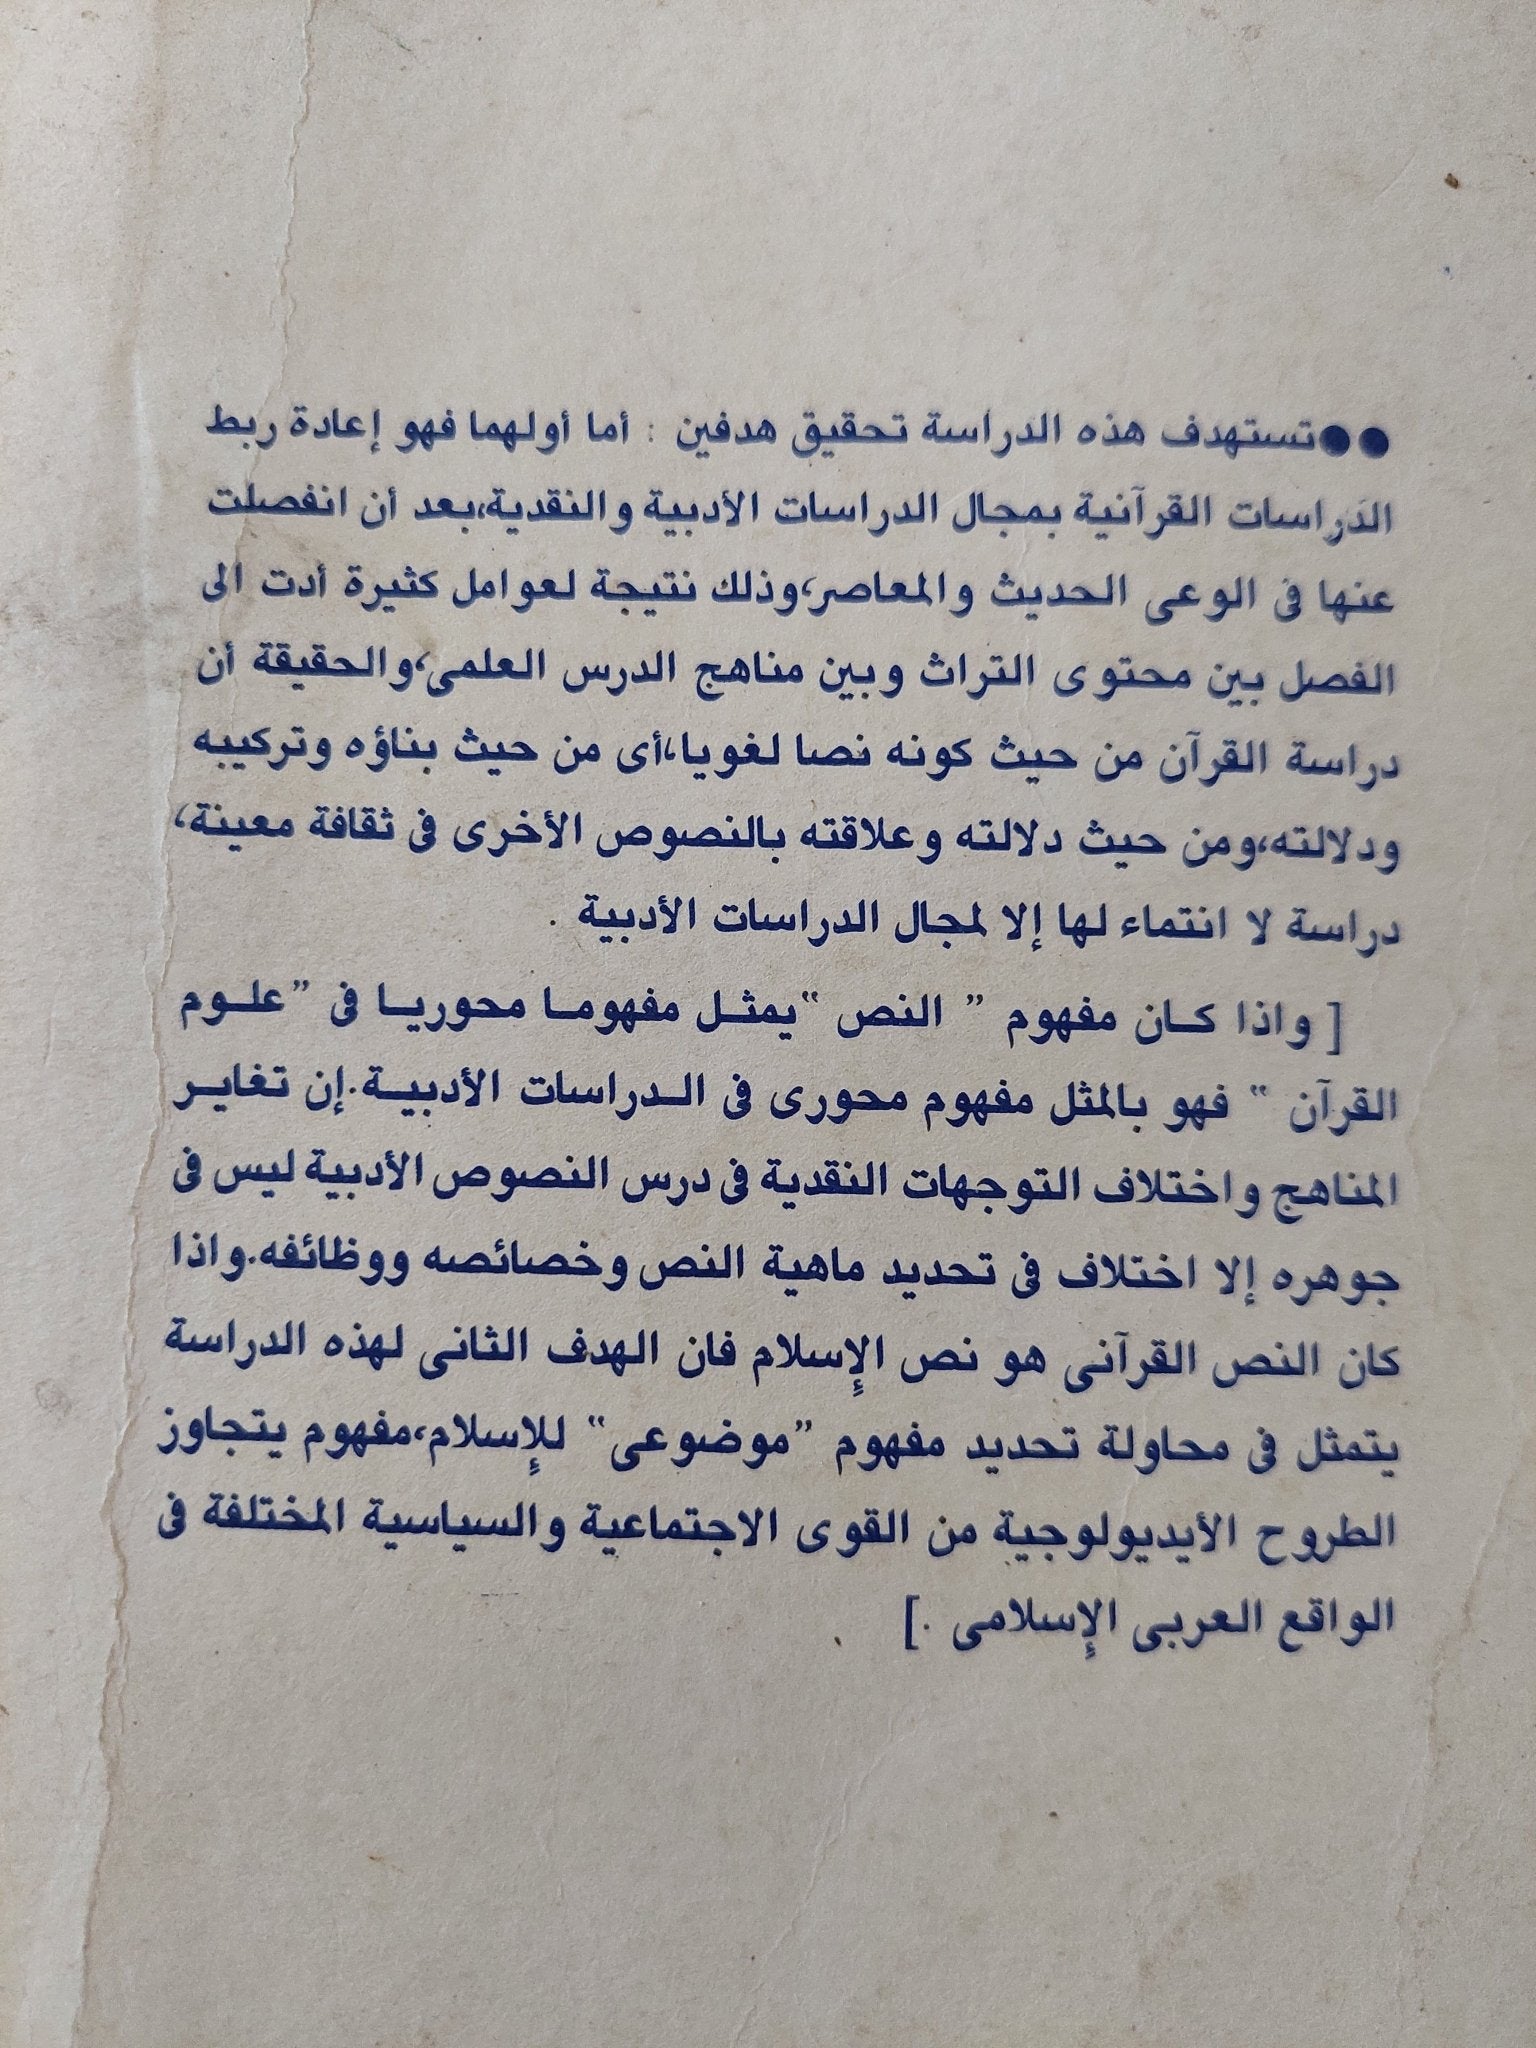 ●●تستهدف هذه الدراسة تحقيق هدفين : أما أولهما فهو إعادة ربط
الدراسات القرآنية بمجال الدراسات الأدبية والنقدية،بعد أن انفصلت
عنها فى الوعى الحديث والمعاصر،وذلك نتيجة لعوامل كثيرة أدت الى
الفصل بين محتوى التراث وبين مناهج الدرس العلمى،والحقيقة أن
دراسة القرآن من حيث كونه نصا لغويا،أى من حيث بناؤه وتركيبه
ودلالته،ومن حيث دلالته وعلاقته بالنصوص الأخرى فى ثقافة معينة،
دراسة لا انتماء لها إلا لمجال الدراسات الأدبية .
[ واذا كـان مفهوم ” النص “يمثـل مفهومـا محوريـا فى ”علـوم
القرآن “ فهو بالمثل مفهوم محورى فى الـدراسات الأدبيـة.إن تغايـر
المناهج واختلاف التوجهات النقدية فى درس النصوص الأدبية ليس فى
جوهره إلا اختلاف فى تحديد ماهية النص وخصائصه ووظائفه.واذا
كان النص القرآنى هو نص الإسلام فان الهدف الثانى لهذه الدراسة
يتمثل فى محاولة تحديد مفهوم ”موضوعى“ للإسلام،مفهوم يتجاوز
الطروح الأيديولوجية من القوى الاجتماعية والسياسية المختلفة فى
الواقع العربى الإسلامى .]